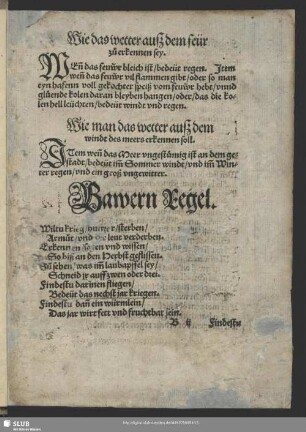 Wie das wetter auß dem feür
zů erkennen sey.
WEñ das feuwr bleich ist/bedeüt regen. Item
weñ das feuwr vil flammen gibt/oder so man
eyn hafenn voll gekochter speiß vom feuwr hebt/vnnd
glüende kolen daran bleyben hangen/oder/das die ko-
len hell leüchten/bedeüt windt vnd regen.
Wie man das wetter auß dem
windt des meers erkennen soll.
ITem weñ das Meer vngestümig ist an dem ge-
stadt/bedeüt im̃ Sommer winde/vnd im̃ Win-
ter regen/vnd ein groß vngewitter.
Bawern Regel.
Wiltu krieg/hunger/sterben/
Armůt/vnd leut verderben.
Erkennen sehen vnd wissen/
So biß an den Herbst geflissen.
Zů sehen/was im̃ laubapffel sey/
Schneid jr auff zwen oder drei.
Findestu darinen fliegen/
Bedeüt das nechst jar kriegen.
Findestu dañ ein würmlein/
Das jar wirt fett vnd fruchtbar sein.
B ij Findestu
SLUB
Wir führen Wissen.